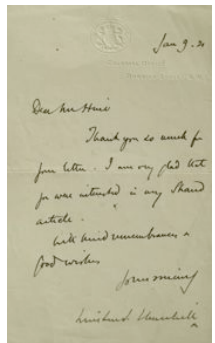 Jan 9. 30
Dear Mr
Thank you so much for
your letter. I am very glad that
you were interested in my Strand
article.
With kind remembrances &
good wishes
Yours sincerely
Winston S. Churchill